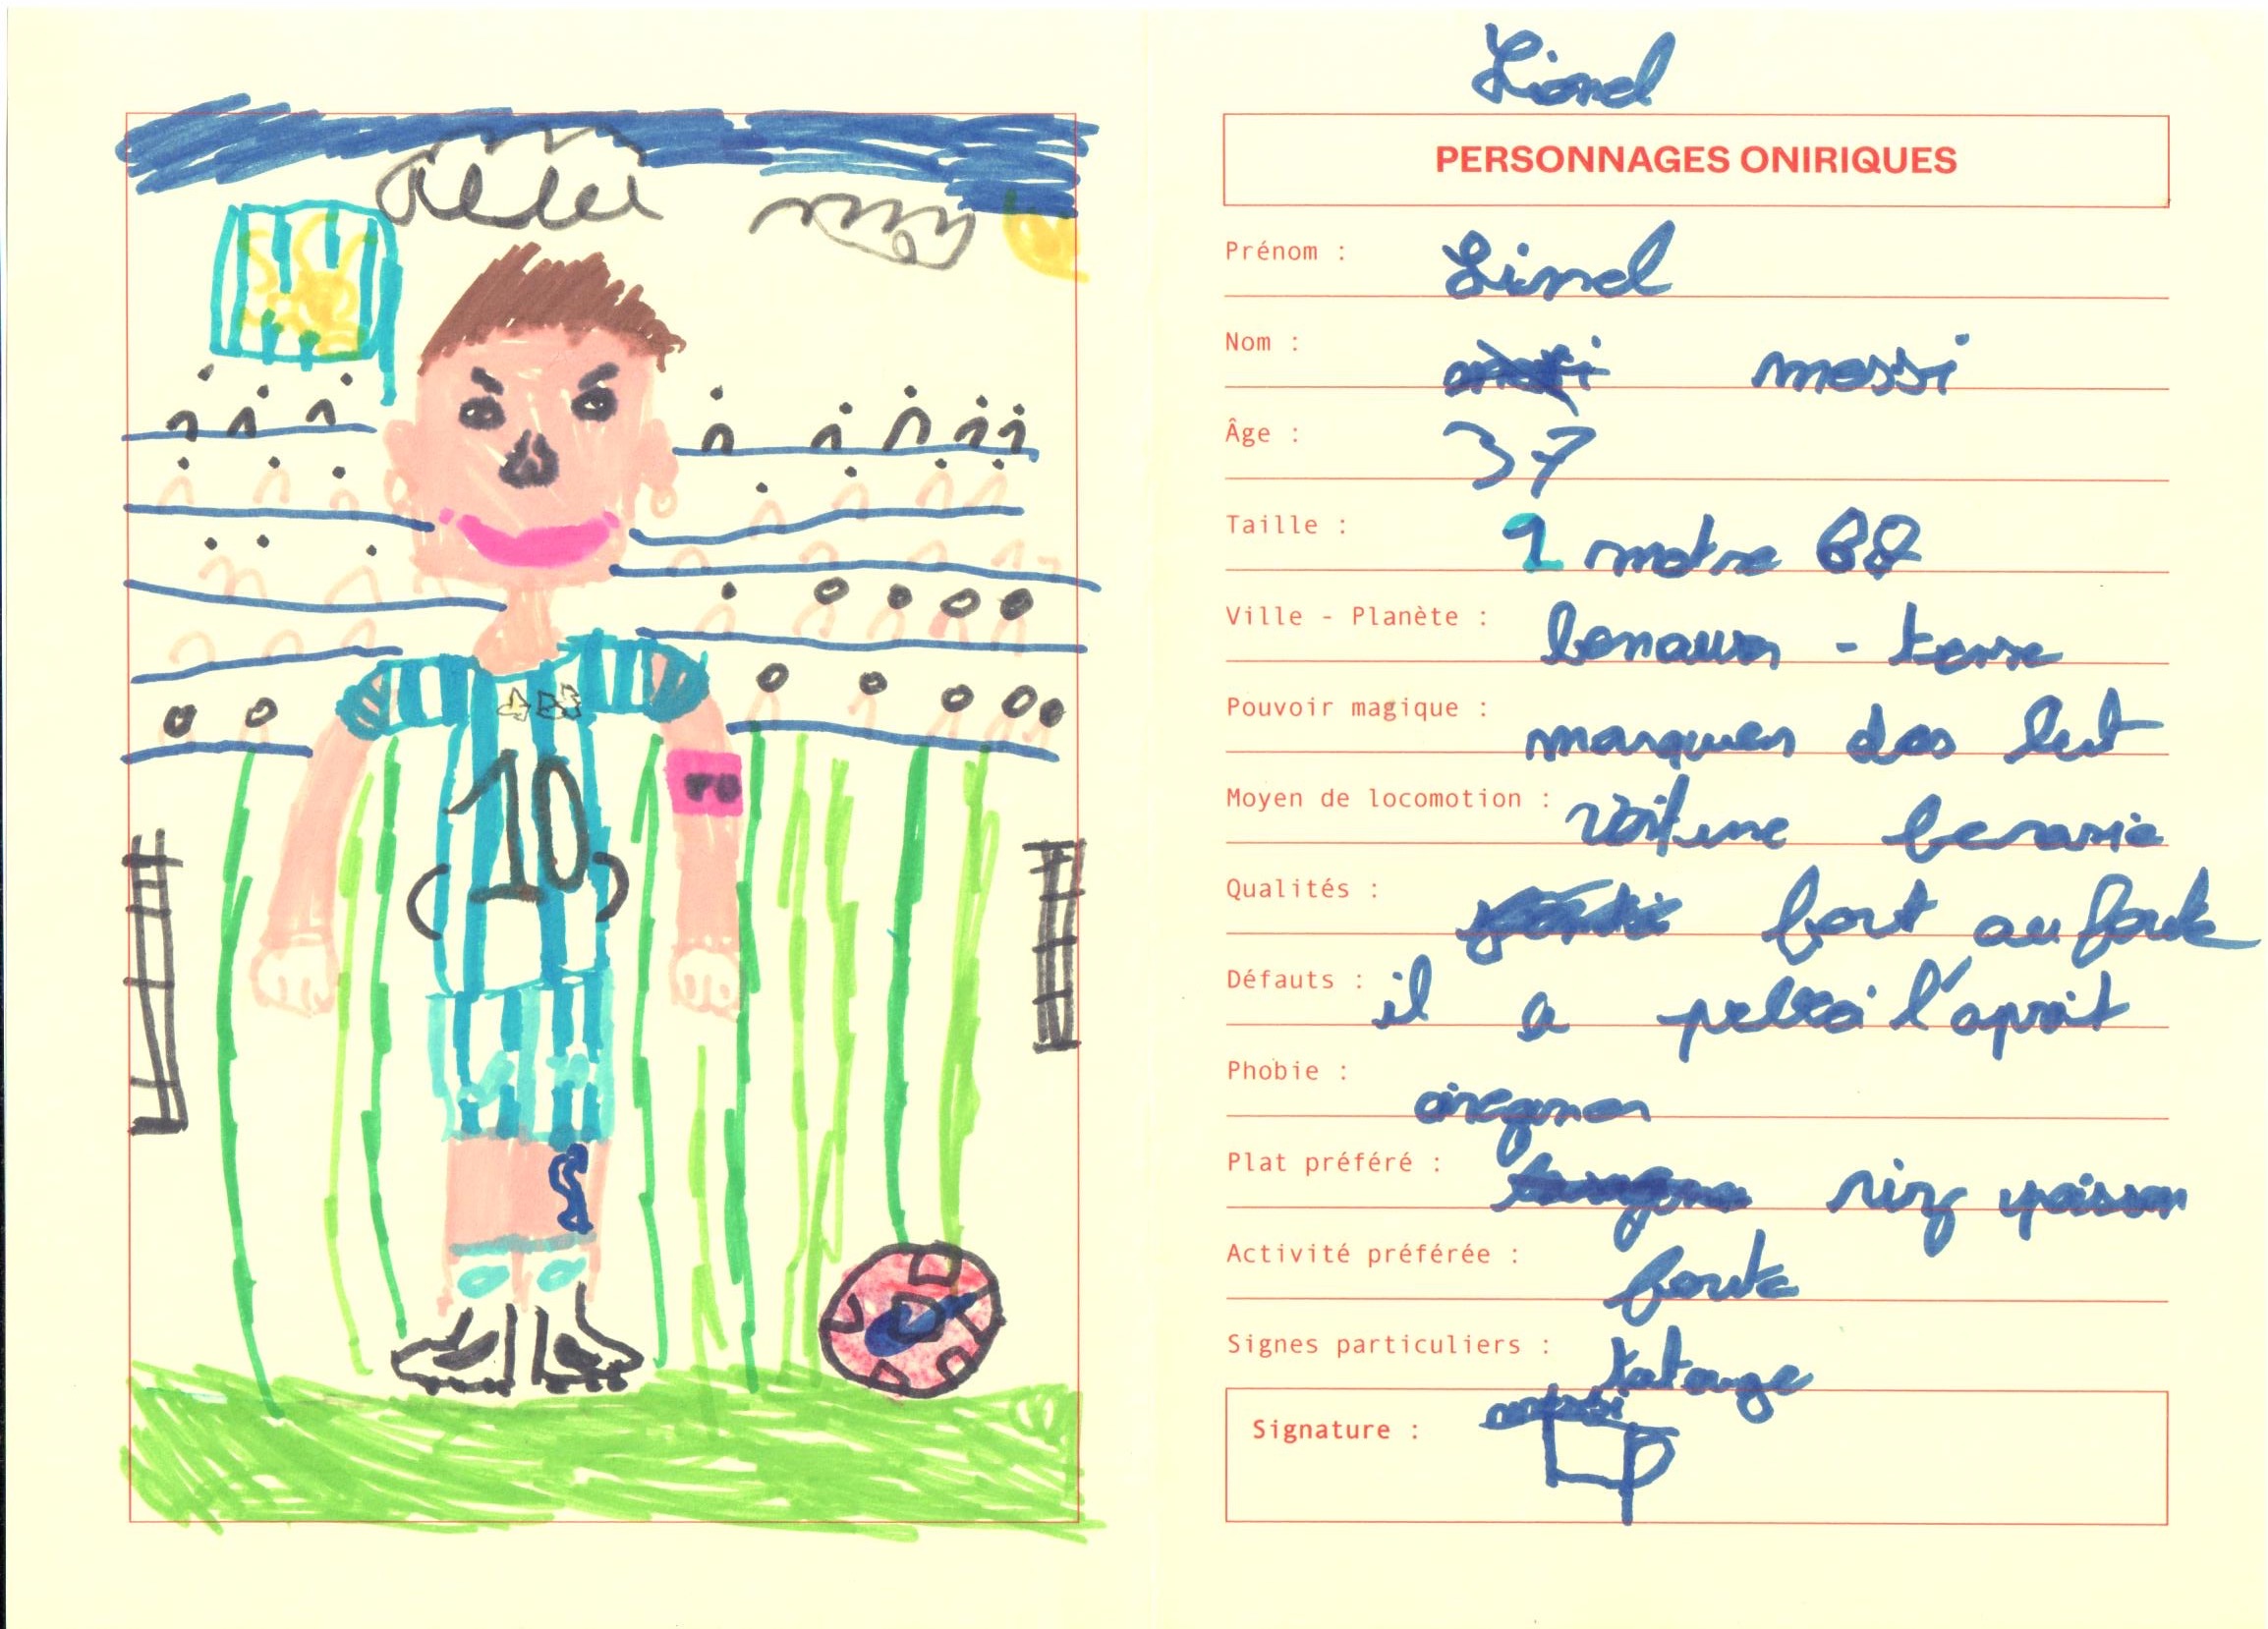 Lionel
PERSONNAGES ONIRIQUES
Prénom : Lionel
Nom : messi
Âge : 37
Taille : 1 metre 68
Ville - Planète : - terre
Pouvoir magique : marquer des but
Moyen de locomotion : voiture ferarrie
Qualités : fort au foute
Défauts : il a
Phobie :
Plat préféré : riz poisson
Activité préférée : foute
Signes particuliers : tatouge
Signature : messi
10